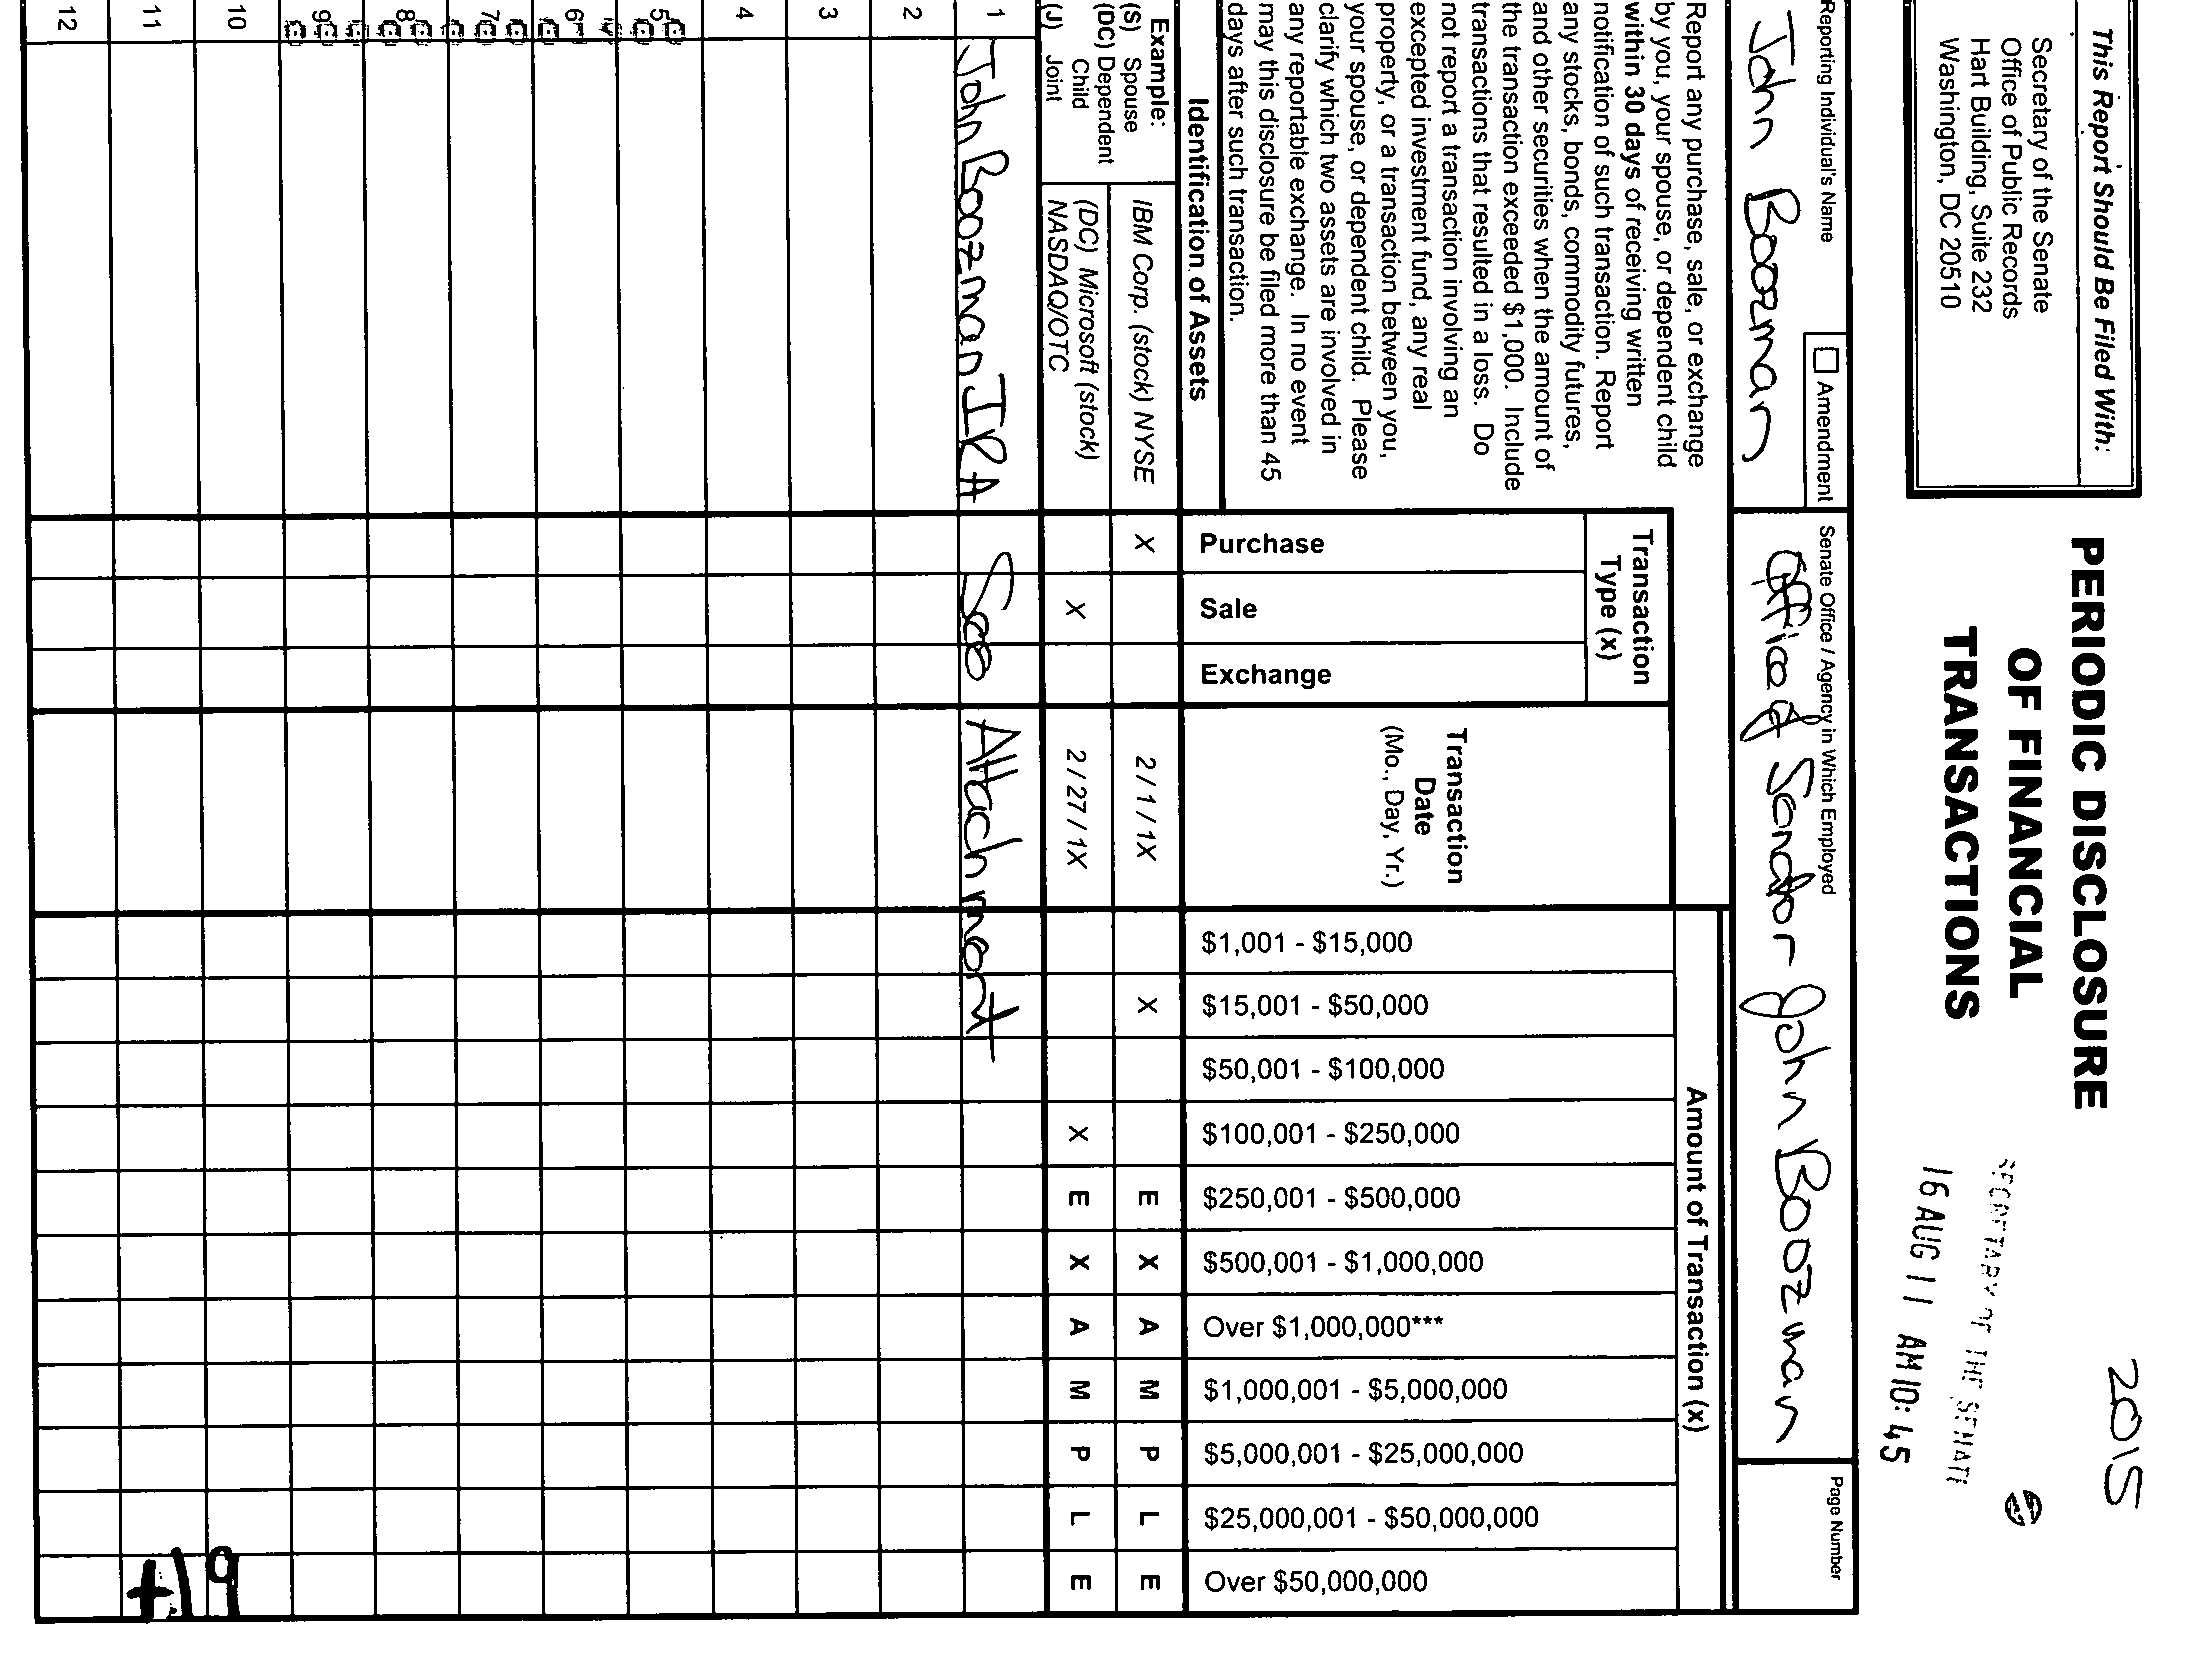 This Report Should Be Filed With:
Secretary of the Senate
Office of Public Records
Hart Building, Suite 232
Washington, DC 20510
PERIODIC DISCLOSURE
OF FINANCIAL
TRANSACTIONS
2015
SECRETARY OF THE SENATE
16 AUG 11 AM 10:45
Reporting Individual's Name
John Boozman
Amendment
Senate Office / Agency in Which Employed
Office of Senator John Boozman
Page Number
Report any purchase, sale, or exchange
by you, your spouse, or dependent child
within 30 days of receiving written
notification of such transaction. Report
any stocks, bonds, commodity futures,
and other securities when the amount of
the transaction exceeded $1,000. Include
transactions that resulted in a loss. Do
not report a transaction involving an
excepted investment fund, any real
property, or a transaction between you,
your spouse, or dependent child. Please
clarify which two assets are involved in
any reportable exchange. In no event
may this disclosure be filed more than 45
days after such transaction.
Identification of Assets
Transaction
Type (x)
Purchase
Sale
Exchange
Transaction
Date
(Mo., Day, Yr.)
Amount of Transaction (x)
$1,001 - $15,000
$15,001 - $50,000
$50,001 - $100,000
$100,001 - $250,000
$250,001 - $500,000
$500,001 - $1,000,000
Over $1,000,000***
$1,000,001 - $5,000,000
$5,000,001 - $25,000,000
$25,000,001 - $50,000,000
Over $50,000,000
Example:
(S) Spouse
(DC) Dependent
Child
(J) Joint
IBM Corp. (stock) NYSE X 2/1/1X X E X A M P L E
(DC) Microsoft (stock)
NASDAQ/OTC X 2/27/1X X E X A M P L E
1 John Boozman IRA See Attachment
2
3
4
5
6
7
8
9
10
11
12